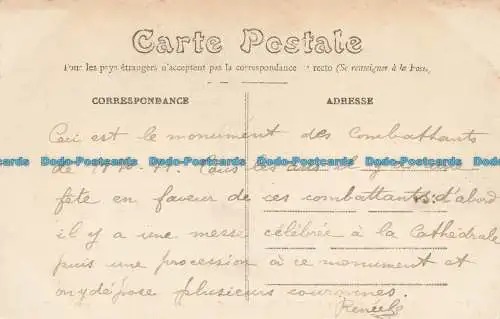 Carte Postale
Pour les pays étrangers n'acceptent pas la correspondance au recto (Se renseigner à la Poste)
CORRESPONDANCE ADRESSE
Ceci est le monument des combattants
Dodo-Postcards Dodo-Postcards Dodo-Postcards Dodo-Postcards Dodo-Postcards Dodo-Postcards
de Tous les ans il y a
fête en faveur de ces combattants: d'abord
il y a une messe célébrée à la Cathédrale
puis une procession à ce monument et
on y dépose plusieurs couronnes.
Renée